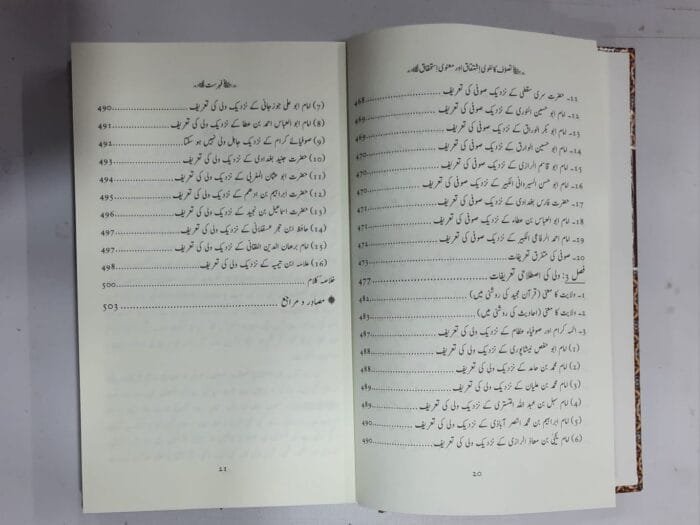 تصوف کا لغوی اشتقاق اور معنوی استحقاق
11۔ حضرت سری سقطی کے نزدیک صوفی کی تعریف 468
12۔ امام ابو حسین النوری کے نزدیک صوفی کی تعریف 469
13۔ امام ابو بکر الوراق کے نزدیک صوفی کی تعریف 469
14۔ امام ابو حسین الوراق کے نزدیک صوفی کی تعریف 470
15۔ امام ابو قاسم الرازی کے نزدیک صوفی کی تعریف 470
16۔ امام ابو حسن السیروانی الکبیر کے نزدیک صوفی کی تعریف 470
17۔ حضرت فارس بغدادی کے نزدیک صوفی کی تعریف 471
18۔ امام ابو العباس بن عطاء کے نزدیک صوفی کی تعریف 471
19۔ امام احمد الرفاعی الکبیر کے نزدیک صوفی کی تعریف 471
20۔ صوفی کی متفرق تعریفات 473
فصل 3: ولی کی اصطلاحی تعریفات 477
1۔ ولایت کا معنی (قرآن مجید کی روشنی میں) 482
2۔ ولایت کا معنی (احادیث کی روشنی میں) 483
3۔ ائمہ کرام اور صوفیاء عظام کے نزدیک ولی کی تعریف 487
(1) امام ابو حفص نیشاپوری کے نزدیک ولی کی تعریف 488
(2) امام محمد بن حامد کے نزدیک ولی کی تعریف 488
(3) امام محمد بن علیان کے نزدیک ولی کی تعریف 489
(4) امام سہل بن عبد اللہ التستری کے نزدیک ولی کی تعریف 489
(5) امام ابراہیم بن محمد النصر آبادی کے نزدیک ولی کی تعریف 490
(6) امام یحییٰ بن معاذ الرازی کے نزدیک ولی کی تعریف 490
20
فہرست
(7) امام ابو علی جوزجانی کے نزدیک ولی کی تعریف 490
(8) امام ابو العباس احمد بن عطا کے نزدیک ولی کی تعریف 491
(9) صوفیائے کرام کے نزدیک جاہل ولی نہیں ہو سکتا 492
(10) حضرت جنید بغدادی کے نزدیک ولی کی تعریف 493
(11) حضرت ابو عثمان المغربی کے نزدیک ولی کی تعریف 494
(12) حضرت ابراہیم بن ادھم کے نزدیک ولی کی تعریف 495
(13) حضرت اسماعیل بن نجید کے نزدیک ولی کی تعریف 496
(14) حافظ ابن حجر عسقلانی کے نزدیک ولی کی تعریف 497
(15) امام برھان الدین اللقانی کے نزدیک ولی کی تعریف 497
(16) علامہ ابن تیمیہ کے نزدیک ولی کی تعریف 498
خلاصہ کلام 500
مصادر و مراجع 503
21